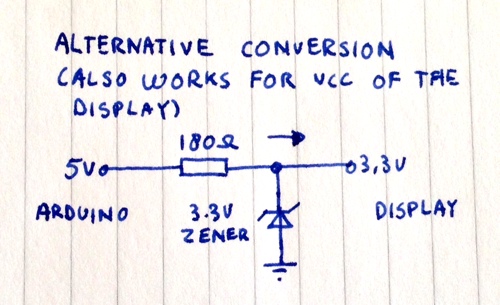 ALTERNATIVE CONVERSION
(ALSO WORKS FOR VCC OF THE
DISPLAY)
180Ω
5V
3,3V
ARDUINO
3.3V
ZENER
DISPLAY